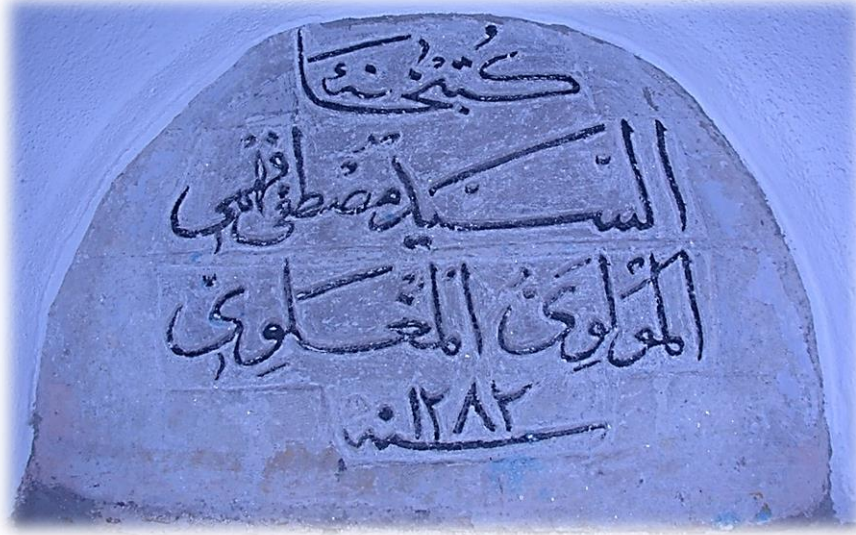 كتبخانهٔ
السيد مصطفى فهمي
المولوي المغلوي
سنه ١٢٨٢